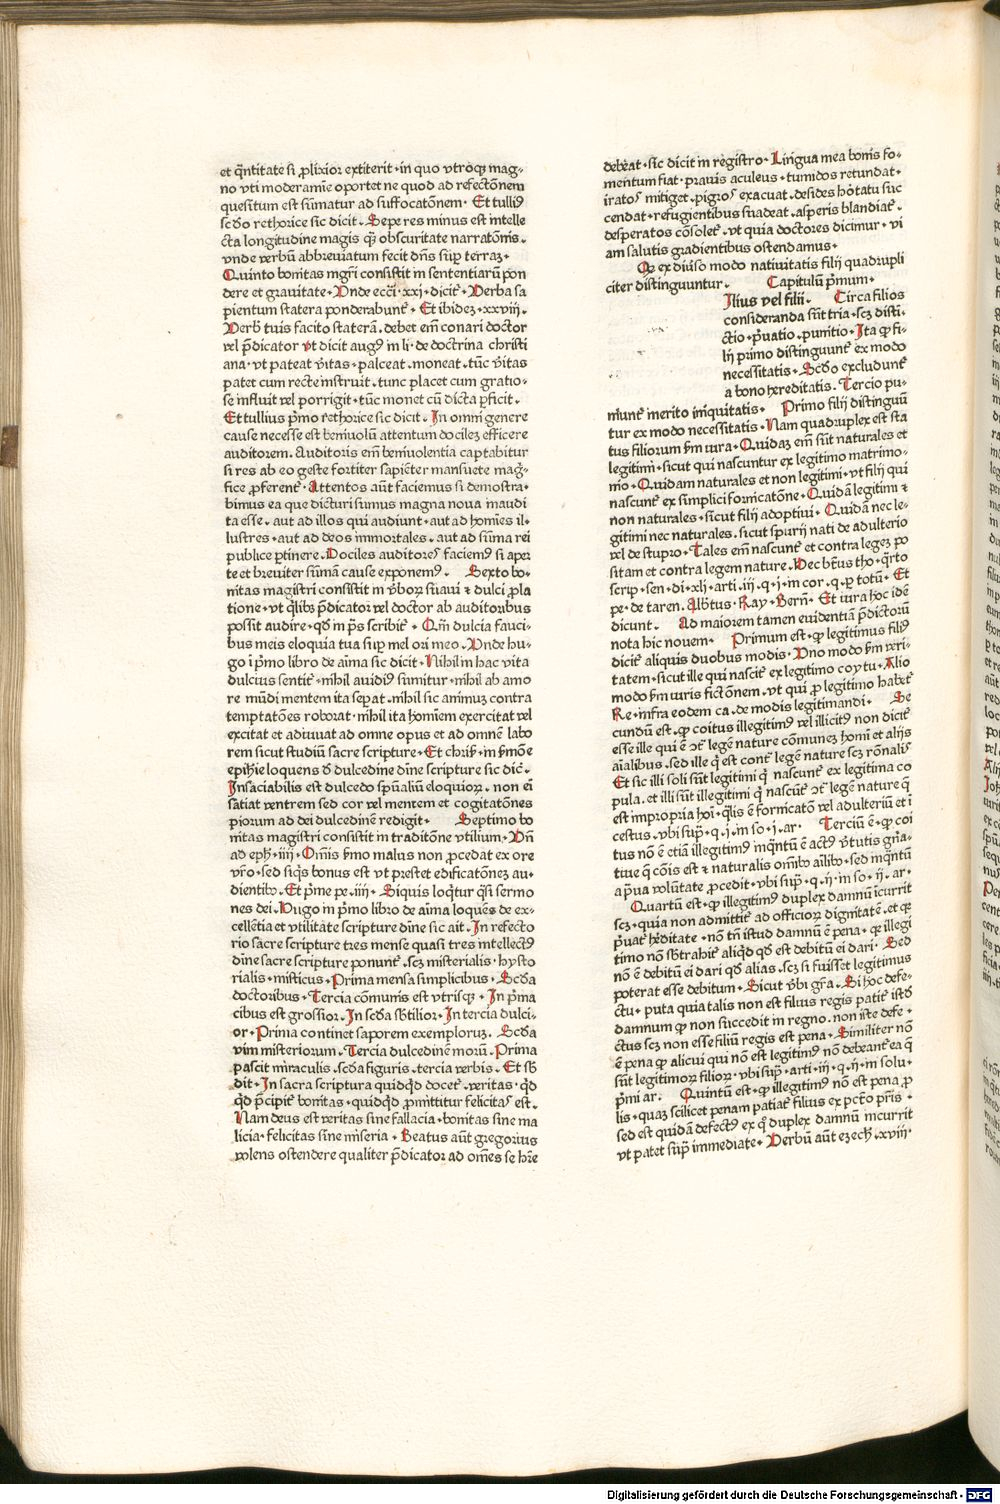 et q̄ntitate si ꝓlixior extiterit · in quo vtroqꝫ mag⸗
no vti moderamīe oportet ne quod ad refectōnem
quesitum est sūmatur ad suffocatōnem · Et tulliꝰ
scďo rethorice sic dicit · Sepe res minus est intelle
cta longitudine magis qꝫ obscuritate narratōnis ·
vnde verbū abbreviatum fecit dn̄s suꝑ terraꝫ ·
Quinto bonitas mgr̄i consistit in sententiarū pon
dere et grauitate · Vnde ecci · xxj · dicit᷑ · Verba sa
pientum statera ponderabunt᷑ · Et ibideꝫ · xxviij ·
Verb̄ tuis facito staterā · debet em̄ conari doctor
vel p̄dicator vt dicit augꝰ in li · de doctrina christi
ana · vt pateat v̄itas · palceat · moneat · tūc v̄itas
patet cum recte instruit · tunc placet cum gratio⸗
se influit vel porrigit · tūc monet cū dicta ꝑficit ·
Et tullius p̄mo rethorice sic dicit · In omni genere
cause necesse est beniuolū attentum docileꝫ efficere
auditorem · Auditoris em̄ beniuolentia captabitur
si res ab eo geste fortiter sapiēter mansuete maḡ⸗
fice ꝓferent᷑ · Attentos aūt faciemus si demostra⸗
bimus ea que dicturi sumus magna noua inaudi
ta esse · aut ad illos qui audiunt · aut ad homīes il⸗
lustres · aut ad deos immortales · aut ad sūma rei
publice ꝑtinere · Dociles auditoreſ faciemꝰ si aper
te et breviter sūmā cause exponemꝰ · Sexto bo⸗
nitas magistri consistit in v̄boꝝ suaui ⁊ dulci ꝓla
tione · vt q̄libꝫ p̄dicator vel doctor ab auditoribus
possit audire · qď in p̄s scribit᷑ · Qm̄ dulcia fauci⸗
bus meis eloquia tua suꝑ mel ori meo · Vnde hu⸗
go ī p̄mo libro de aīma sic dicit · Nihil in hac vita
dulcius sentit᷑ · nihil auidiꝰ sumitur · nihil ab amo
re mūdi mentem ita seꝑat · nihil sic animuꝫ contra
temptatōes roborat · nihil ita homīem exercitat vel
excitat et adiuuat ad omne opus et ad omnē labo
rem sicut studiū sacre scripture · Et
epiħie loquens ď dulcedine dīne scripture sic diċ ·
Insaciabilis est dulcedo spūaliū eloquioꝝ · non eī
satiat ventrem sed cor vel mentem et cogitatōnes
piorum ad dei dulcedinē redigit · Septimo bo
nitas magistri consistit in traditōne vtilium · Vn̄
ad eph · iiij · Om̄is ẜmo malus non ꝓcedat ex ore
vr̄o · sed siqͥs bonus est vt prestet edificatōneꝫ au⸗
dientibꝰ · Et p̄me pe · iiij · Siquis loq̄tur q̄si sermo
nes dei · Hugo in p̄mo libro de aīma loquēs de ex⸗
cellētia et vtilitate scripture dīne sic ait · In refecto
rio sacre scripture tres mense quasi tres intellectꝰ
dīne sacre scripture ponunt᷑ · scꝫ misterialis · hysto
rialis · misticus · Prima mensa simplicibus · Scďa
doctoribus · Tercia cōmunis est vtrisqꝫ · In p̄ma
cibus est grossior · In scďa sb̄tilior · In tercia dulci⸗
or · Prima continet saporem exemploruꝫ · Scďa
vim misteriorum · Tercia dulcedinē morū · Prima
pascit miraculis · scďa figuris · tercia verbis · Et sb̄
dit · In sacra scriptura quidqͥd docet᷑ · veritas · qͥd
qͥd p̄cipit᷑ bonitas · quidqͥd ꝓmittitur felicitaſ est ·
Nam deus est veritas sine fallacia · bonitas sine ma
licia · felicitas sine miseria · Beatus aūt gregorius
volens ostendere qualiter p̄dicator ad om̄es se hr̄e
debeat · sic dicit in registro · Lingua mea bonis fo⸗
mentum fiat · prauis aculeus · tumidos retundat ·
iratoſ mitiget · pigroſ exacuat · desides hōtatu suc
cendat · refugientibus suadeat · asperis blandiat᷑ ·
desperatos cōsolet᷑ · vt quia doctores dicimur · vi
am salutis gradientibus ostendamus ·
Qꝫ ex diūso modo natiuitatis filij quadrupli
citer distinguuntur · Capitulū p̄mum ·
Ilius vel filii · Circa filios
consideranda sūt tria · scꝫ disti
ctio · p̄uatio · punitio · Ita ꝙ fi⸗
lij primo distinguunt᷑ ex modo
necessitatis · Scďo excludunt᷑
a bono hereditatis · Tercio pu⸗
niunt᷑ merito iniquitatis · Primo filij distinguū
tur ex modo necessitatis · Nam quadruplex est sta
tus filiorum ẜm iura · Quidaꝫ em̄ sūt naturales et
legitimi · sicut qui nascuntur ex legitimo matrimo⸗
nio · Quidam naturales et non legitimi · vt filij qui
nascunt᷑ ex simplici fornicatōne · Quidā legitimi ⁊
non naturales · sicut filij adoptiui · Quidā nec le⸗
gitimi nec naturales · sicut spurij nati de adulterio
vel de stupro · Tales em̄ nascunt᷑ et contra legeꝫ po
sitam et contra legem nature · Hec bt̄us tho · q̄rto
scrip · sen · di · xlj · arti · iij · q · j · in cor · q · ꝑ totū · Et
pe · de taren · Alb̄tus · Ray · Bern̄ · Et iura hoc idē
dicunt · Ad maiorem tamen euidentiā p̄dictorū
nota hic nouem · Primum est · ꝙ legitimus filiꝰ
dicit᷑ aliquis duobus modis · Vno modo ẜm veri⸗
tatem · sicut ille qui nascit᷑ ex legitimo coytu · Alio
modo ẜm iuris fictōnem · vt qui ꝓ legitimo habet᷑
Re · infra eodem ca · de modis legitimandi · Se
cundū est · ꝙ coitus illegitimꝰ vel illicitꝰ non dicit᷑
esse ille qui ē ↄͭ legē nature cōmuneꝫ homī et alijs
aīalibus · sed ille q̄ est cont᷑ legē nature scꝫ rōnaliſ
Et sic illi soli sūt legitimi q̄ nascunt᷑ ex legitima co
pula · et illi sūt illegitimi q̄ nascūt᷑ ↄͭ legē nature q̄
est impropria hoī · q̄lis ē fornicatō vel adulteriū et ī
cestus · vbi suꝑ · q · j · in so · j · ar · Terciū ē · ꝙ coi
tus nō ē etiā illegitimꝰ inq̄ntū ē actꝰ v̄tutis gn̄a⸗
tiue q̄ cōis est ⁊ naturalis omībꝰ aīlibꝰ · sed inq̄ntū
a p̄ua volūtate ꝓcedit · vbi suꝑ · q · ij · in so · ij · ar ·
Quartū est · ꝙ illegitimꝰ duplex damnū īcurrit
scꝫ · quia non admittit᷑ ad officioꝝ dignitatē · et qꝫ
p̄uat᷑ hēditate · nō tn̄ istud damnū ē pena · qꝫ illegi
timo nō sb̄trahit᷑ aliqͥd qď est debitū ei dari · Sed
nō ē debitū ei dari qď alias · scꝫ si fuisset legitimus
poterat esse debitum · Sicut v̄bi gr̄a · Si hoc defe⸗
ctu · puta quia talis non est filius regis patit᷑ istď
damnum ꝙ non succedit in regno · non iste defe⸗
ctus scꝫ non esse filiū regis est pena · Similiter nō
ē pena ꝙ alicui qui nō est legitimꝰ nō debeant᷑ ea q̄
sūt legitimoꝝ filioꝝ · vbi suꝑ · arti · iij · q · ij · in solu ·
p̄mi ar · Quintū est · ꝙ illegitimꝰ nō est pena ꝓ
lis · quaꝫ scilicet penam patiat᷑ filius ex pcc̄to pr̄is ·
sed est quidā defectꝰ ex qͦ duplex damnū incurrit
vt patet suꝑ immediate · Verbū aūt ezech · xviij ·
Digitalisierung gefördert durch die Deutsche Forschungsgemeinschaft - DFG